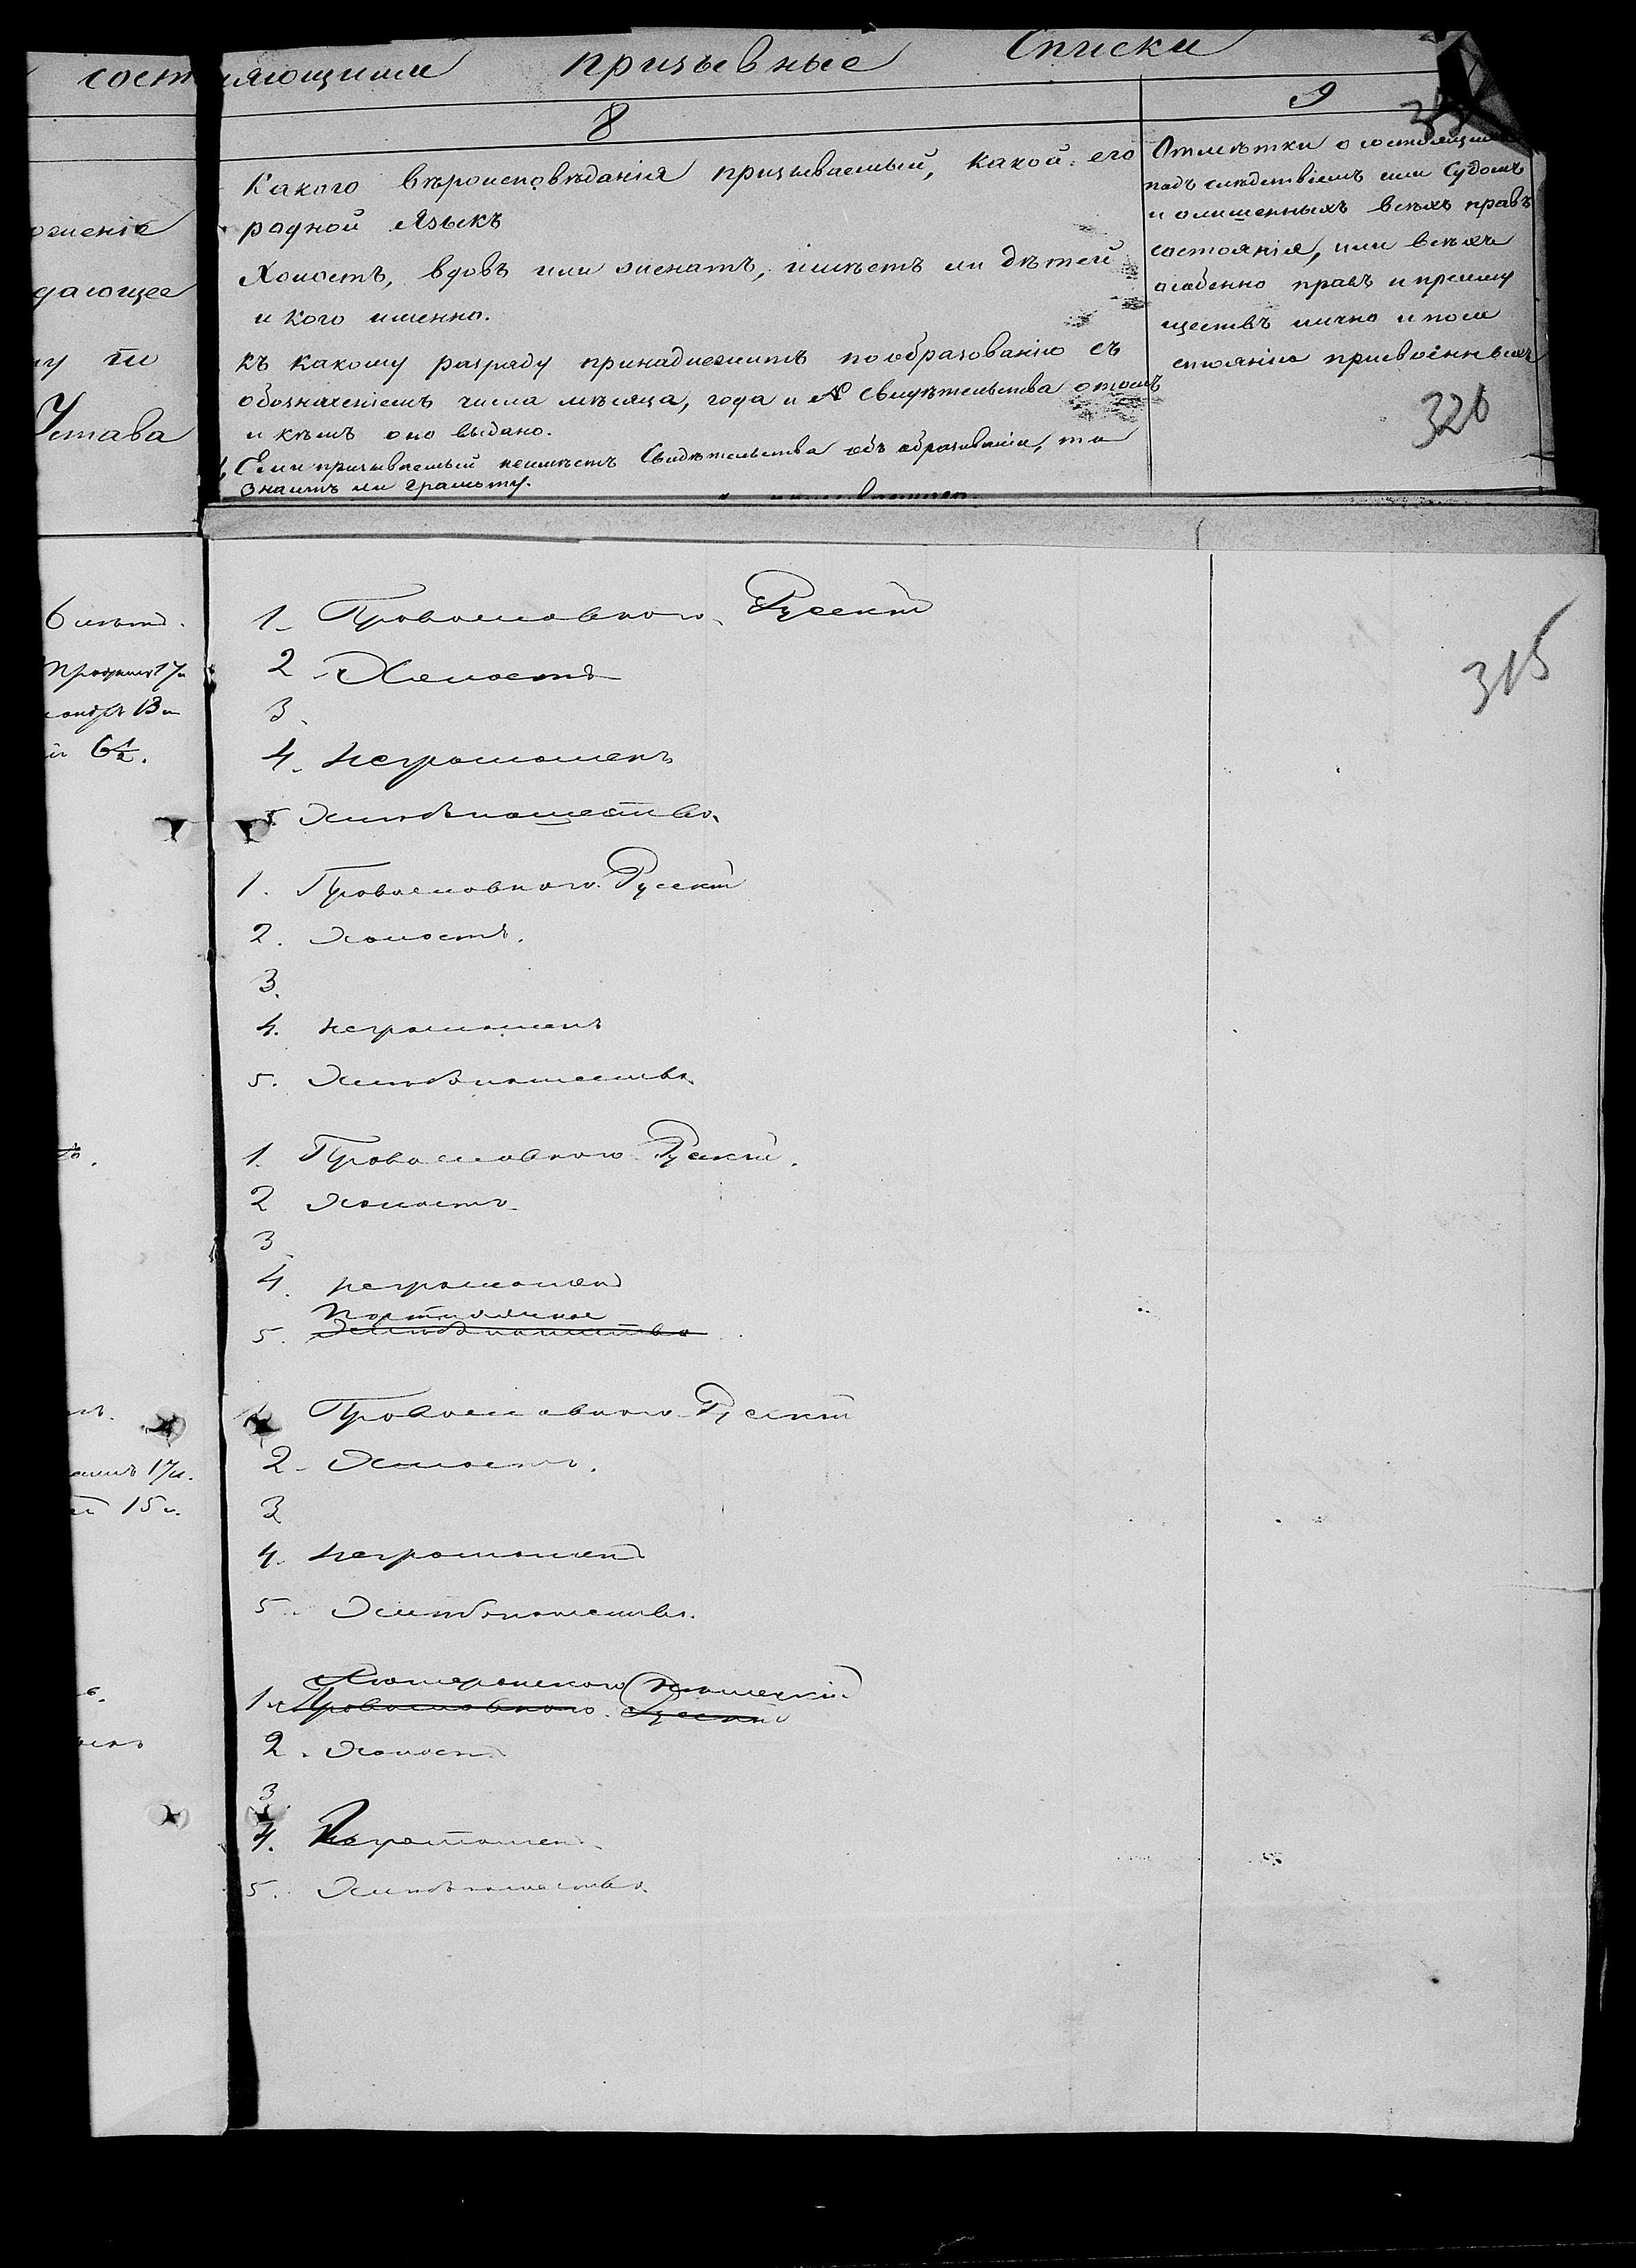 составляющимъ призывные Списки
8
9
Какого вѣроисповѣданія призываемый, какой его
родной Языкъ
Холостъ, вдовъ или женатъ, имѣетъ ли дѣтей
и кого именно.
Къ какому разряду принадлежитъ по образованію съ
обозначеніемъ числа мѣсяца, года и № Свидѣтельства о томъ
и кѣмъ оно выдано.
Если призываемый неимѣетъ Свидѣтельства объ образованіи, то
Знаитъ ли грамоту.
Отмѣтки о состоящихъ
подъ слѣдствіемъ или Судомъ
и о лишенныхъ всѣхъ правъ
состоянія, или всѣхъ
особенно правъ и преиму
ществъ лично и посо
стоянію присвоенныхъ
320
ожение
дающее
Устава
315
6 лѣтъ.
17 л
13 л
6 1/2.
1. Провославного. Русскій
2. Холостъ
3.
4. неграмотенъ
5. Хлѣбопашество.
1. Провославного. Русскій
2. Холостъ.
3.
4. неграмотенъ
5. Хлѣбопашество.
1. Провославного Русскій.
2 Холостъ.
3
4. неграмотенъ
Портняжное
5. Хлѣбопашество
17 л.
15 л.
1. Провославного. Русскій
2. Холостъ.
3
4. неграмотенъ
5. Хлѣбопашество.
Лютеранского Немецкій
1. Провославного. Русский
2. Холостъ
3.
4. Неграмотенъ
5. Хлѣбопашество.